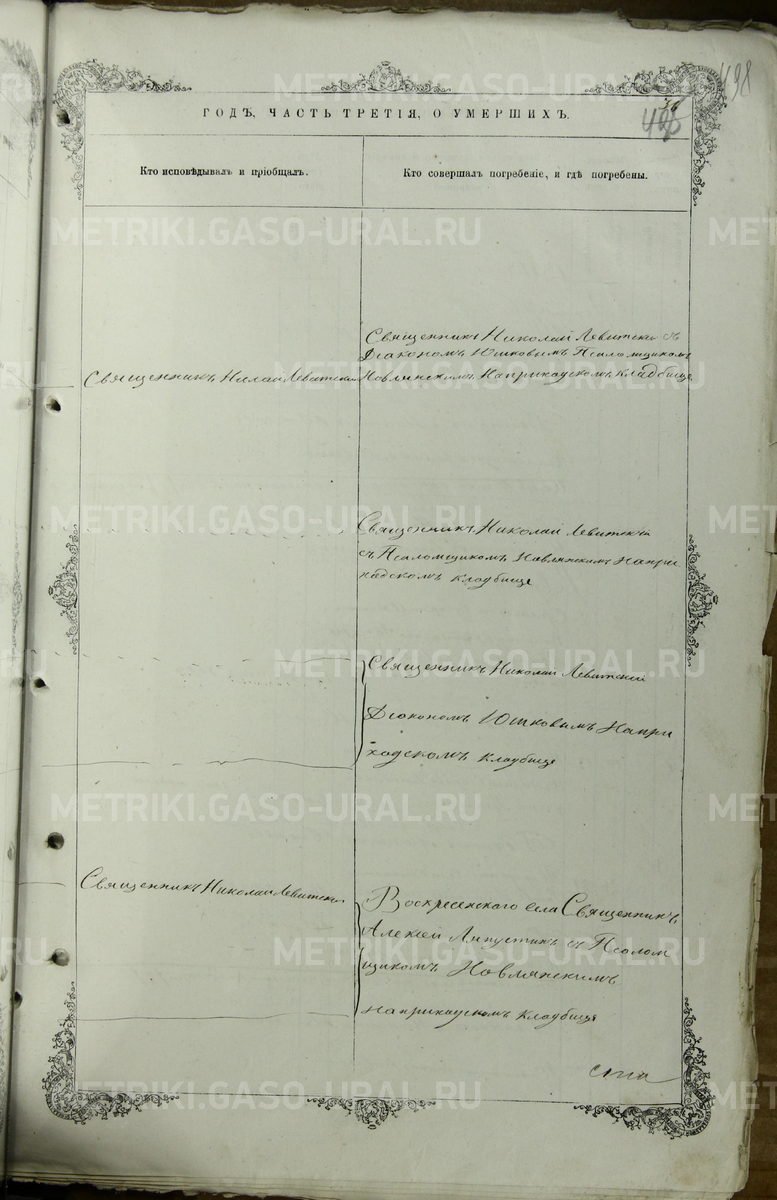 498
36
ГОДЪ, ЧАСТЬ ТРЕТІЯ, О УМЕРШИХЪ.
Кто исповѣдывалъ и пріобщалъ.
Кто совершалъ погребеніе, и гдѣ погребены.
Священникъ Николай Левитскій съ
Діакономъ Юшковымъ Псаломщикомъ
Священникъ Нилай Левитскій
Новлянскимъ Наприходскомъ Кладбище
Священникъ Николай Левитскій
съ Псаломщикомъ Новлянскимъ Напри
ходскомъ Кладбище
Священникъ Николай Левитскій
Діакономъ Юшковымъ Напри
ходскомъ Кладбище
Священникъ Николай Левитскій
Воскресенскаго села Священникъ
Алексій съ Псалом
щикомъ Новлянскимъ
Наприходскомъ Кладбище
METRIKI.GASO-URAL.RU